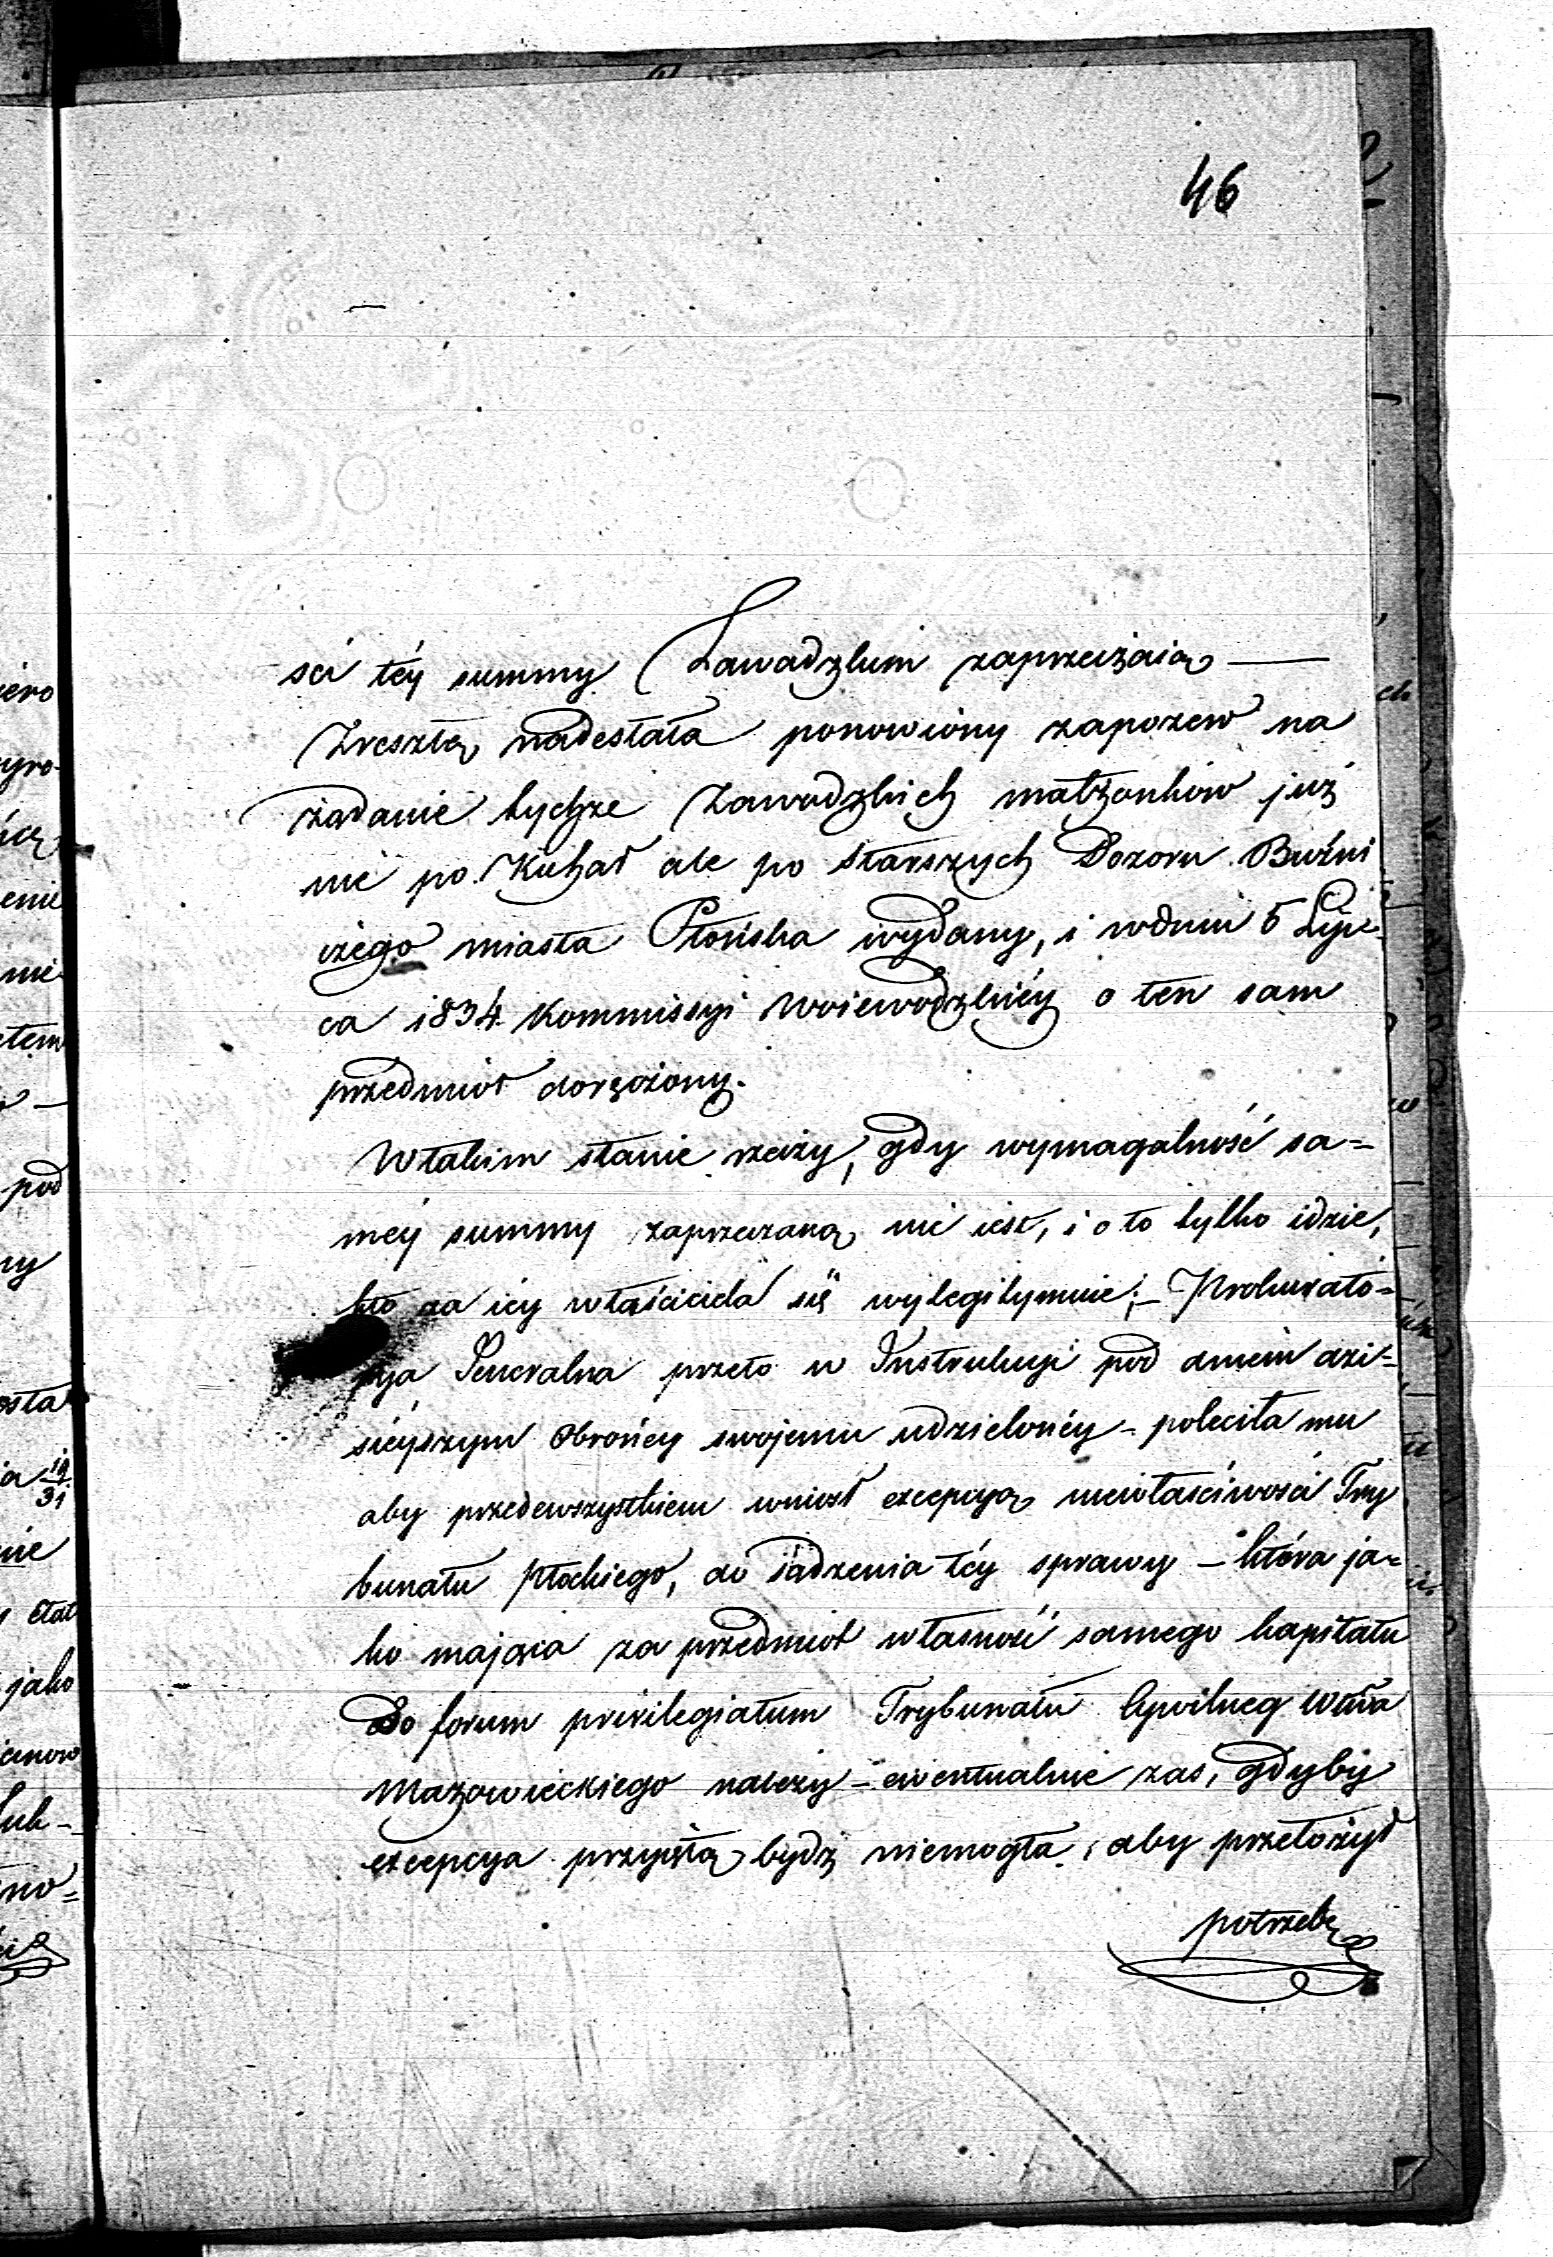 46
ści téy summy Zawadzkim zaprzeczaią —
Zresztą nadesłała ponowiony zapozew na
żądanie tychże Zawadzkich małżonków już
nie po Kuhał ale po Starszych Dozoru Buźni
czego miasta Płońska wydany, i w dniu 5 Lip-
ca 1834 Kommissyi Woiewodzkiéy o ten sam
przedmiot doręczony.
W takim stanie rzeczy, gdy wymagalność sa=
méy summy zaprzeczaną nie iest, i o to tylko idzie,
kto za iéy właściciela się wylegitymuie; – Prokurato=
rya Jeneralna przeto w Instrukcyi pod dniem dzi=
siéyszym Obrońcy swojemu udzielonéy – poleciła mu
aby przedewszystkiem wniosł excepcyą niewłaściwości Try
bunału Płockiego, do sądzenia téy sprawy – która ja=
ko mająca za przedmiot własność samego kapitału
do forum privilegiatum Trybunału Cywilneg Wdwa
Mazowieckiego należy – ewentualnie zas, gdyby
excepcya przyiętą bydź niemogła, aby przełożył
potrzebę